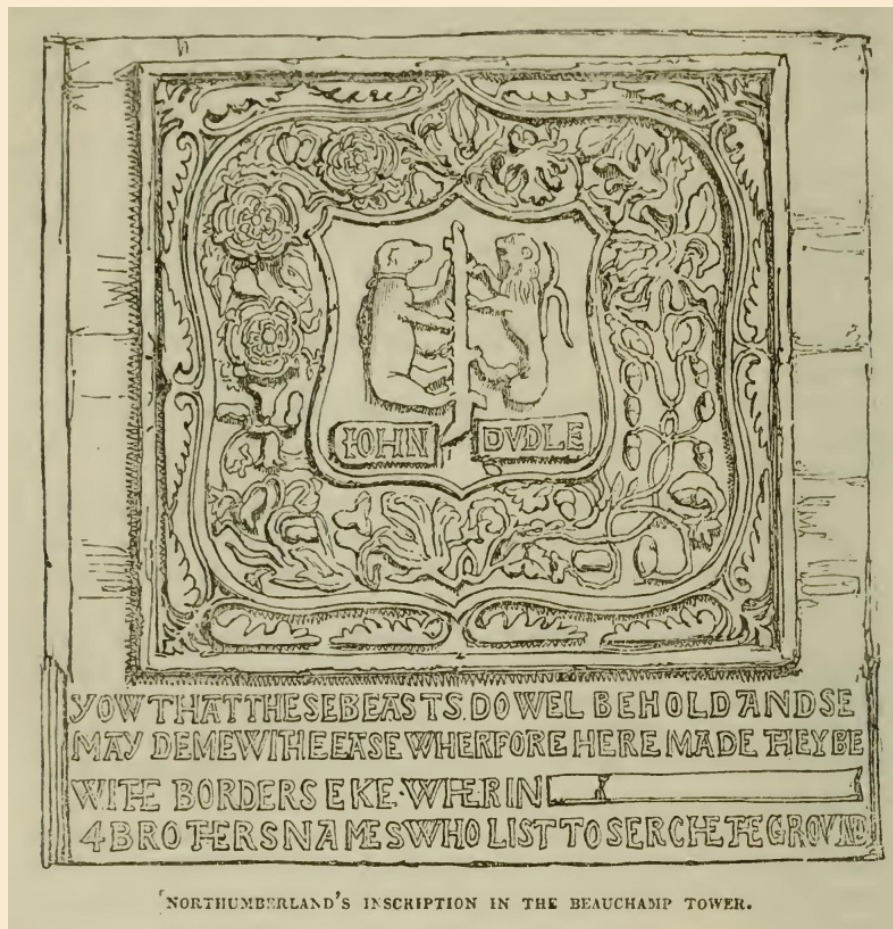 IOHN DVDLE
YOW THAT THESE BEASTS DO WEL BEHOLD AND SE
MAY DEME WITHE EASE WHERFORE HERE MADE THEY BE
WITHE BORDERS EKE WHERIN
4 BROTHERS NAMES WHO LIST TO SERCHE THE GROVND
NORTHUMBERLAND'S INSCRIPTION IN THE BEAUCHAMP TOWER.